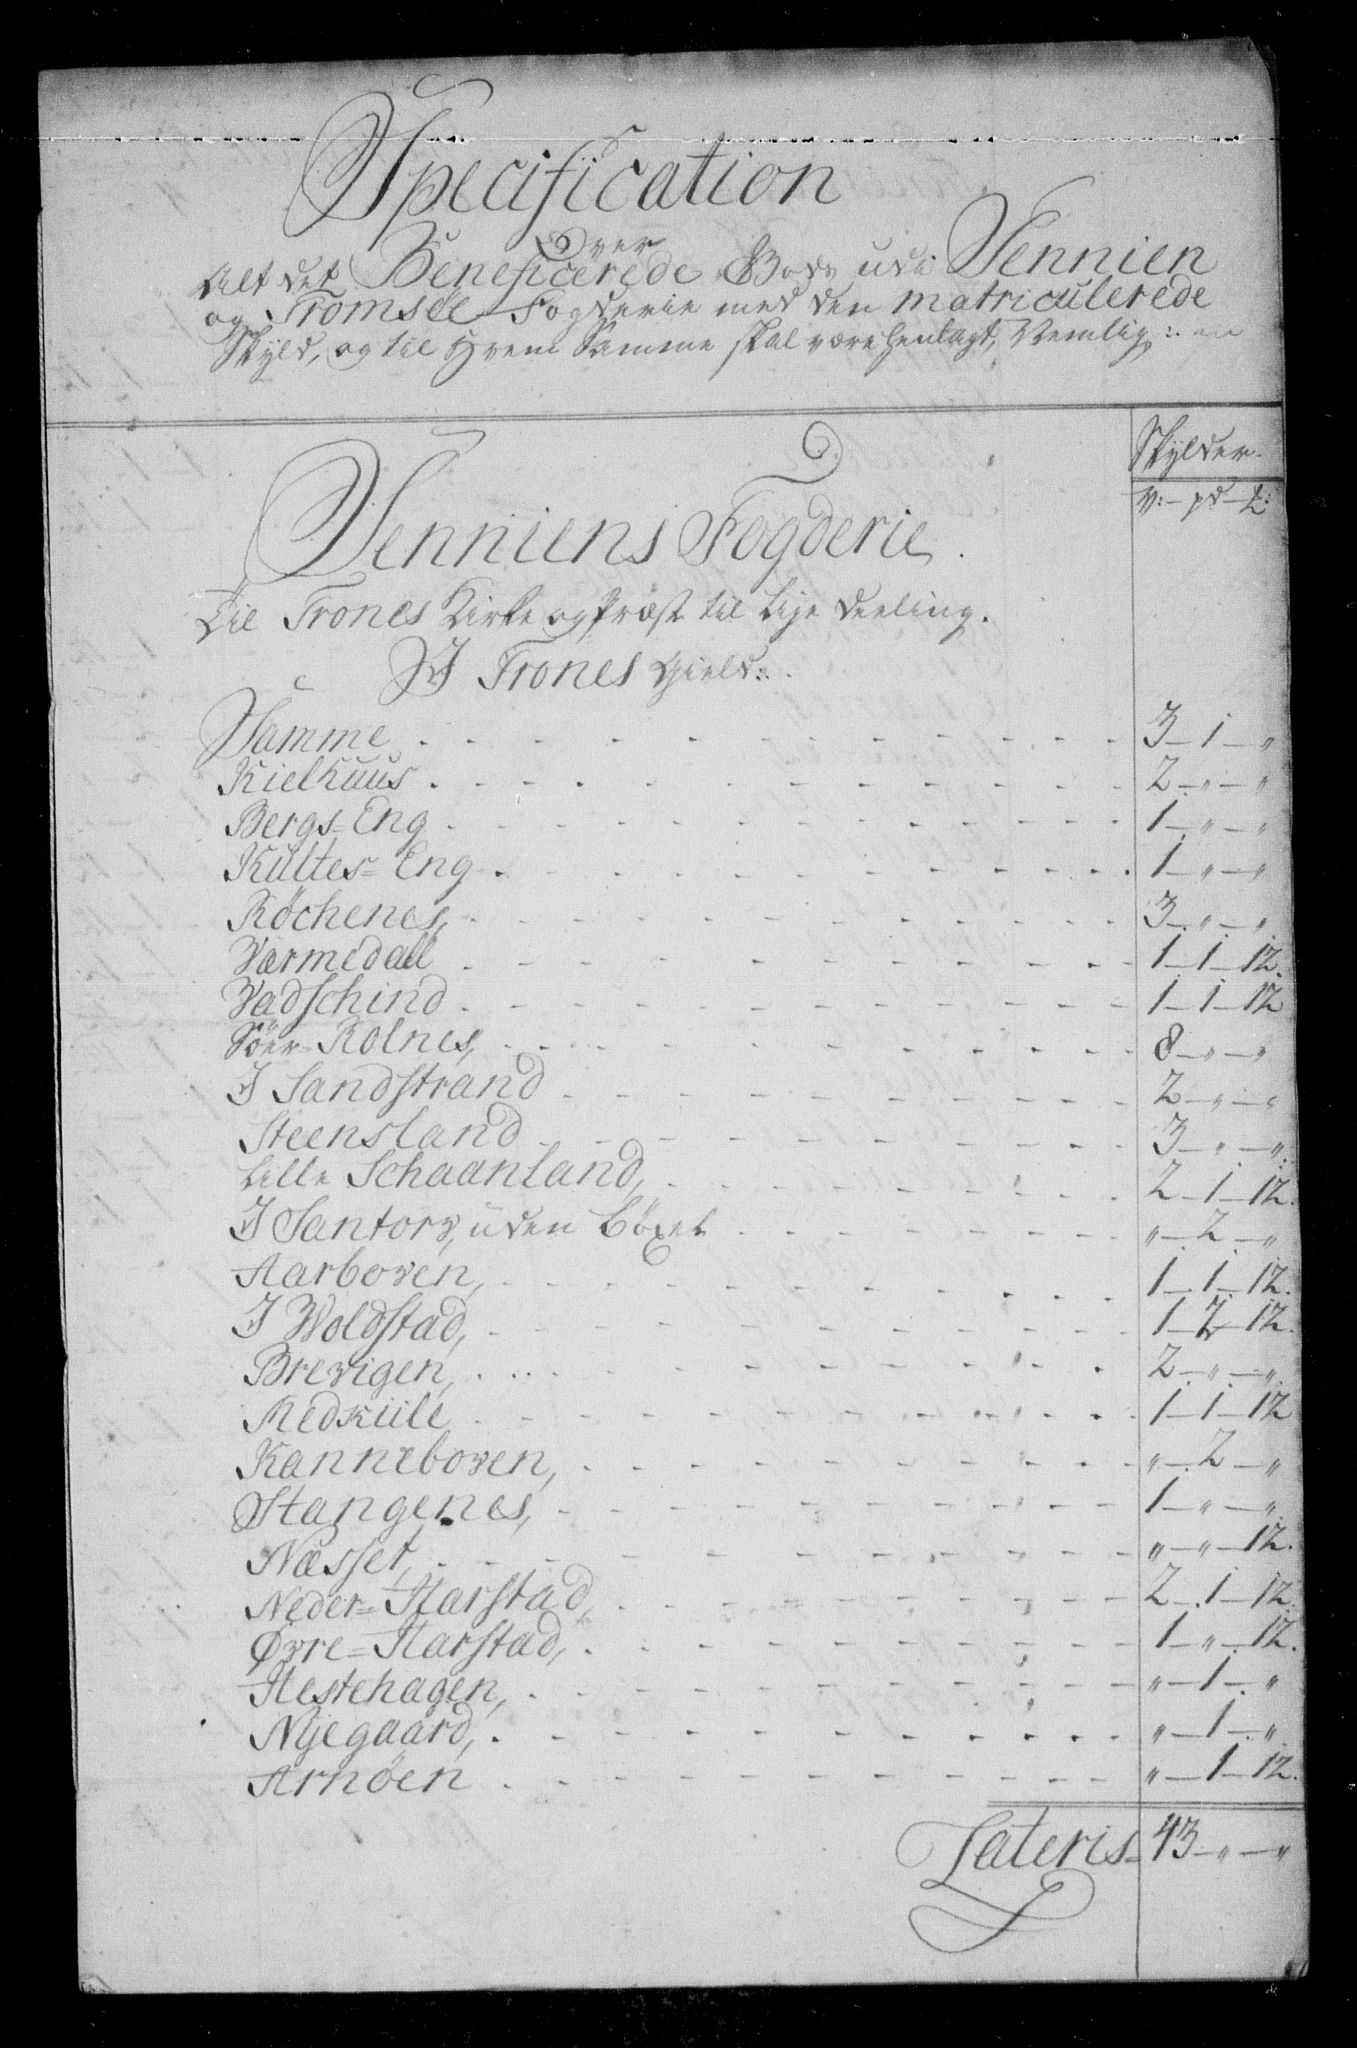 Specification
Over
Alt det Beneficerede Gods udi Sennien
og Tromsöe Fogderie med den matriculerede
Skyld, og til Hvem Samme skal være henlagt, Nemlig:
Skylder.
V: — pd — L:
Senniens Fogderie.
Til Trones Kirke og Præst til lige deeling.
I Trones Gield:
Samme 3 — 1 — "
Kielhuus 2 — " — "
Bergs=Eng 1 — " — "
Kultes=Eng 1 — " — "
Röchenes, 3 — " — "
Værmedall 1 — 1 — 12.
Vadschind 1 — 1 — 12
Söer-Rolnes, 8 — " — "
I Sandstrand 2 — " — "
Steensland 3 — " — "
Lille Schaanland, 2 — 1 — 12.
I Santorv, uden böxel " — 2 — "
Aarboven, 1 — 1 — 12.
I Woldstad, 1 — 2 — 12.
Brevigen, 2 — " — "
Medkiile 1 — 1 — 12
Kanneboven, " — 2 — "
Stangenes, 1 — " — "
Næsset, " — " — 12.
Neder=Harstad, 2 — 1 — 12.
Øvre=Harstad, 1 — " — 12.
Hestehagen, " — 1 — "
Nÿegaard, " — 1 — "
Arnöen " — 1 — 12.
Lateris 43 — " — "